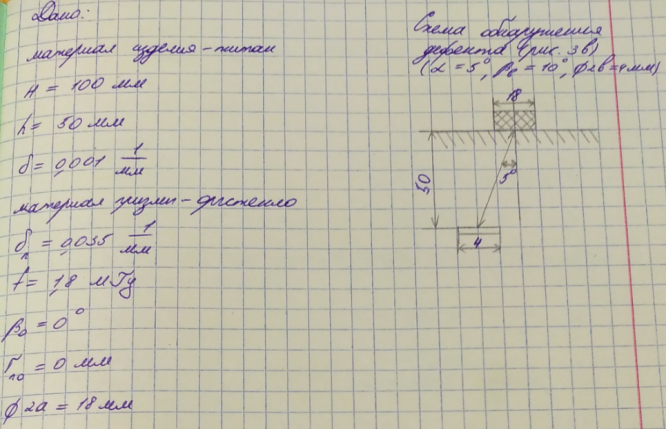 Дано:
материал изделия - титан
H = 100 мм
h = 50 мм
δ = 0,001 1/мм
материал призмы - оргстекло
δп = 0,035 1/мм
f = 1,8 мГц
β0 = 0°
rп0 = 0 мм
ϕ 2a = 18 мм
Схема обнаружения
дефекта (рис. 3в)
(α = 5°, βв = 10°, ϕ2в = 4 мм)
18
50
5°
4